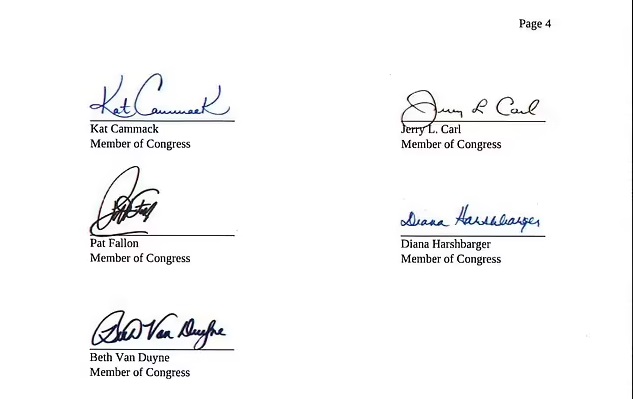 Page 4
Kat Cammack
Kat Cammack
Member of Congress
Jerry L Carl
Jerry L. Carl
Member of Congress
Pat Fallon
Member of Congress
Diana Harshbarger
Diana Harshbarger
Member of Congress
Beth Van Duyne
Beth Van Duyne
Member of Congress